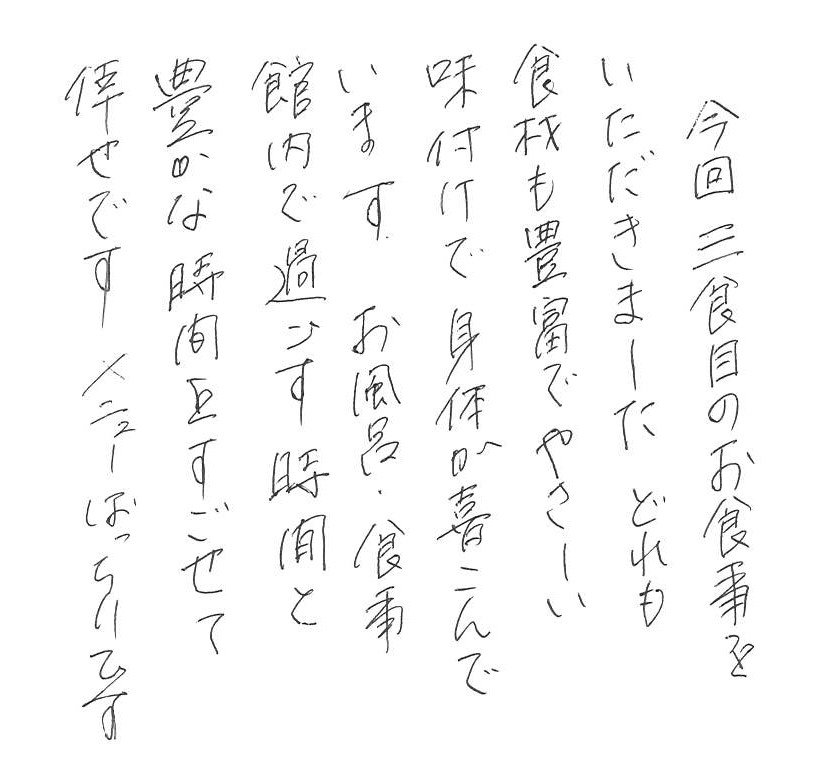 今回三食目のお食事を
いただきました どれも
食材も豊富でやさしい
味付けで身体が喜こんで
います お風呂・食事
館内で過ごす時間と
豊かな時間をすごせて
倖せです メニューばっちりです